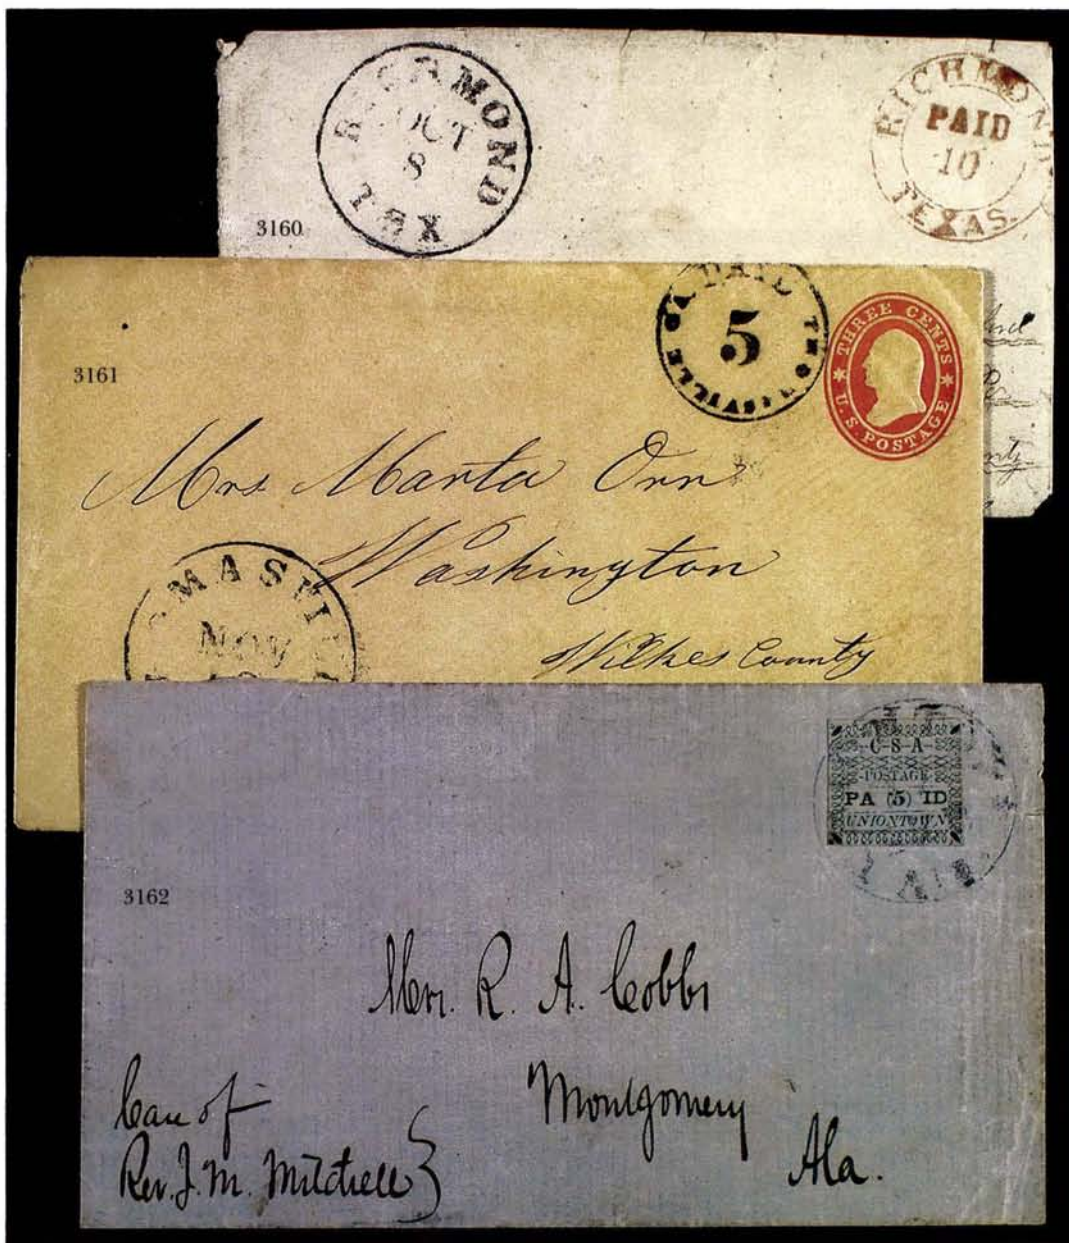 RICHMOND
OCT
8
TEX
RICHMOND
PAID
10
TEXAS.
3160
PAID
5
THOMASVILLE GA
THREE CENTS
U.S. POSTAGE
3161
Mrs Marta Orr
Washington
Wilkes County
MASVI
NOV
C-S-A
POSTAGE
PA (5) ID
UNIONTOWN
3162
Mrs. R. A. Cobbs
Montgomery
Ala.
Care of
Rev. J. M. Mitchell